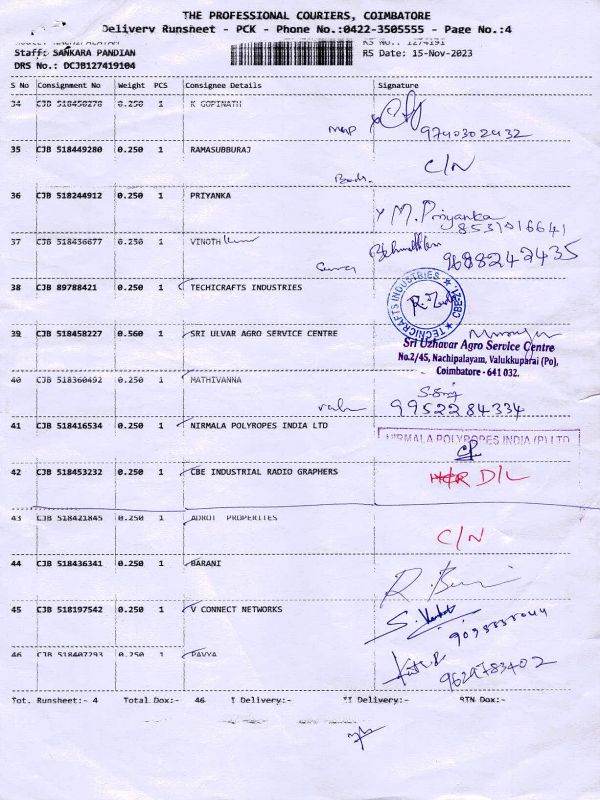 THE PROFESSIONAL COURIERS, COIMBATORE
Delivery Runsheet - PCK - Phone No.:0422-3505555 - Page No.:4
Staff: SANKARA PANDIAN
RS Date: 15-Nov-2023
DRS No.: DCJB127419104
S No Consignment No Weight PCS Consignee Details Signature
34 CJB 518450270 0.250 1 K GOPINATH
map 9740302432
35 CJB 518449280 0.250 1 RAMASUBBURAJ C/N
36 CJB 518244912 0.250 1 PRIYANKA
M. Priyanka
8531016641
37 CJB 518436677 0.250 1 VINOTH
9688242435
38 CJB 89788421 0.250 1 TECHICRAFTS INDUSTRIES
TECNICRAFTS INDUSTRIES
39 CJB 518458227 0.560 1 SRI ULVAR AGRO SERVICE CENTRE
Sri Uzhavar Agro Service Centre
No.2/45, Nachipalayam, Valukkuparai (Po),
Coimbatore - 641 032.
40 CJB 518360492 0.250 1 MATHIVANNA
9952284334
41 CJB 518416534 0.250 1 NIRMALA POLYROPES INDIA LTD
NIRMALA POLYROPES INDIA (P) LTD
42 CJB 518453232 0.250 1 CBE INDUSTRIAL RADIO GRAPHERS
D/L
43 CJB 518421845 0.250 1 ADROT PROPERITES
C/N
44 CJB 518436341 0.250 1 BARANI
45 CJB 518197542 0.250 1 V CONNECT NETWORKS
46 CJB 518407293 0.250 1 PAVYA
9629783402
Tot. Runsheet:- 4 Total Dox:- 46 I Delivery:- II Delivery:- RTN Dox:-